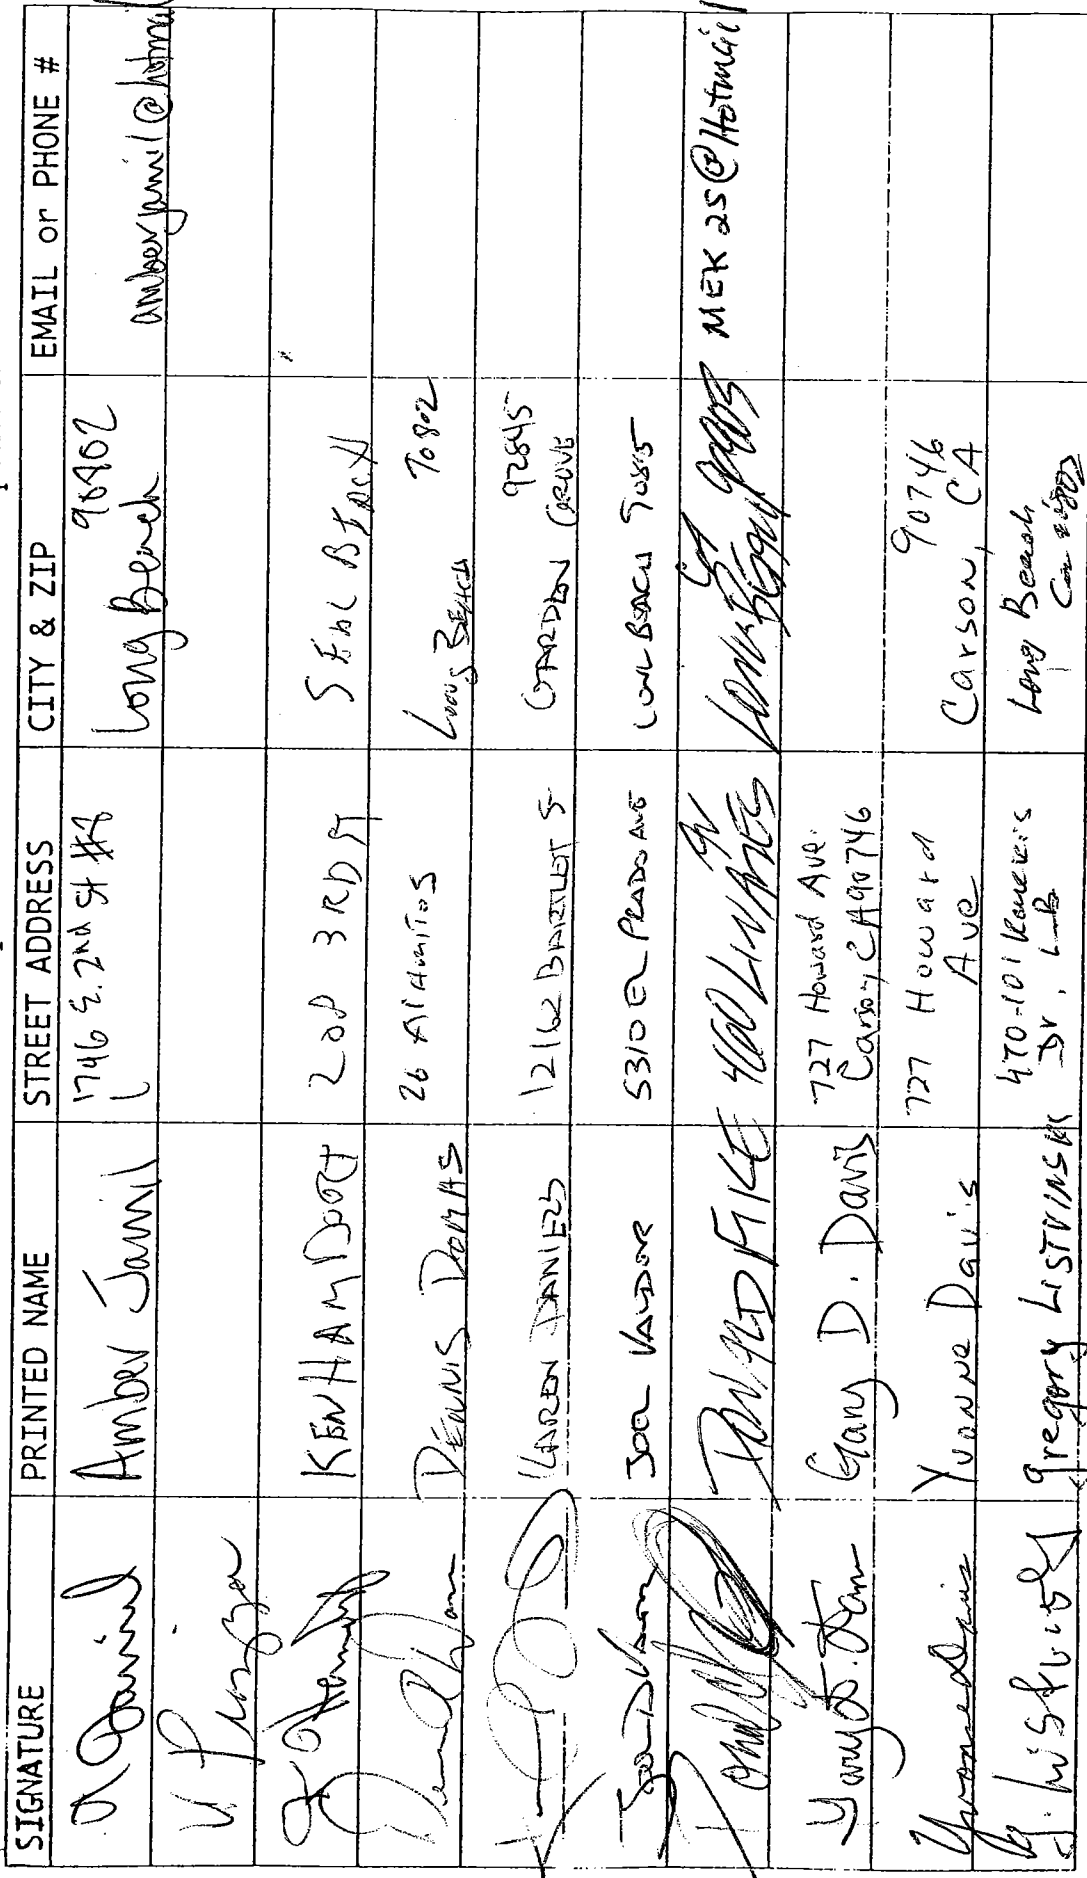 SIGNATURE PRINTED NAME STREET ADDRESS CITY & ZIP EMAIL or PHONE #
Amber Jamil 1746 E. 2nd St #A Long Beach 90802 amberjamil@hotmail
KEN HAMDORF 208 3RD ST SEAL BEACH
DENNIS DOMAS 26 Alamitos Long Beach 90802
KAREN DANIELS 12162 BARTLET S GARDEN GROVE 92845
JOEL 5310 EL PRADO AVE LONG BEACH 90815
DONALD FIKE 460 MEK25@Hotmail
Gary D. Davis Gary D. Davis 727 Howard Ave. Carson, CA 90746
Yvonne Davis Yvonne Davis 727 Howard Ave Carson, CA 90746
Gregory LISTVINSKI 470-101 Dr. L.B. Long Beach